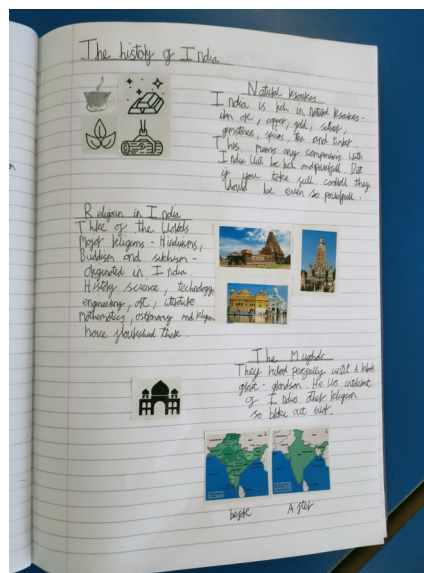 The history of India
Natural Resources
India is rich in Natural Resources -
iron ore, copper, gold, silver,
gemstones, spices, tea and timber.
This means any companions with
India will be rich and powerfull. But
if you take full controll they
would be even so powerfull.
Religion in India
Three of the Worlds
Major Religions - Hinduisms,
Buddism and sikhism -
originated in India.
History science, technology
engineering, art, literature
Mathematics, astronomy and religion
have flourished there.
The Mughals
They ruled peacfully until Akbars
great - grandson. He was intolerant
of Indias other religion
so broke out
before After